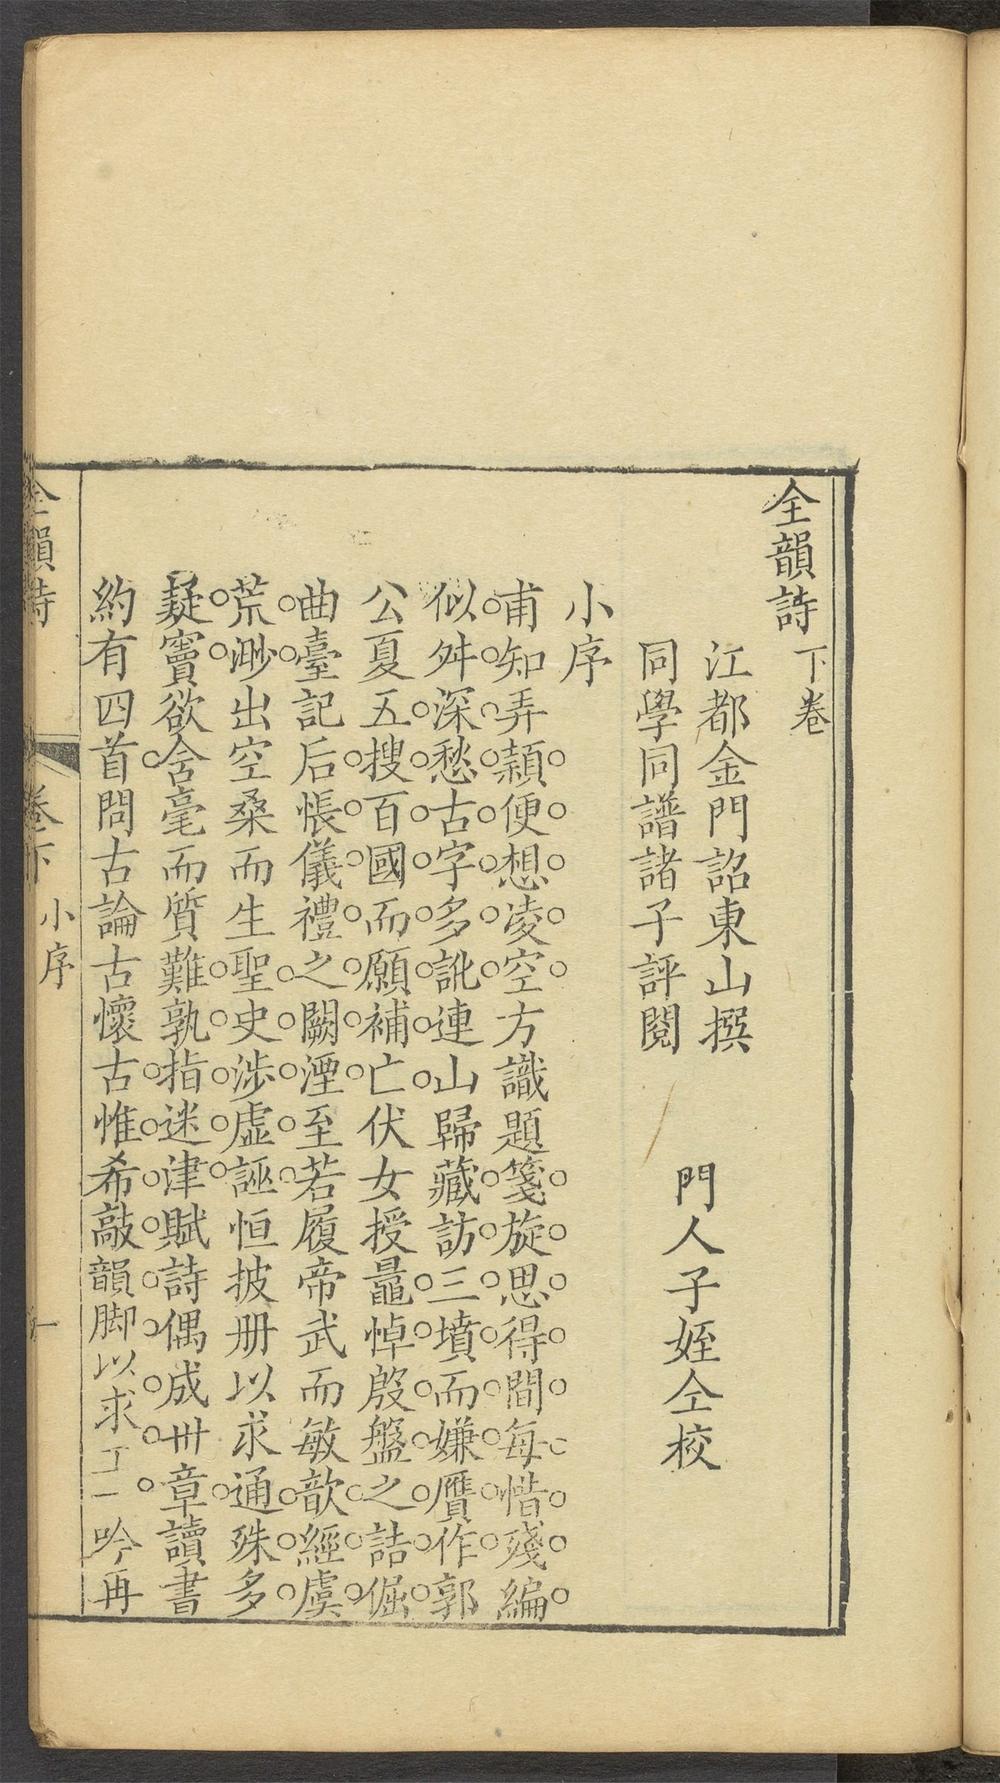 全韻詩下卷
江都金門詔東山撰
同學同譜諸子評閱
門人子姪仝校
小序
甫知弄頴便想凌空方識題箋旋思得間每惜殘編
似舛深愁古字多訛連山歸藏訪三墳而嫌贗作郭
公夏五搜百國而願補亡伏女授鼂悼殷盤之詰倔
曲臺記后悵儀禮之闕湮至若履帝武而敏歆經虞
荒渺出空桑而生聖史涉虛誣恒披册以求通殊多
疑竇欲含毫而質難孰指迷津賦詩偶成卅章讀書
約有四首問古論古懷古惟希敲韻脚以求工一吟再
全韻詩
卷下
小序
一